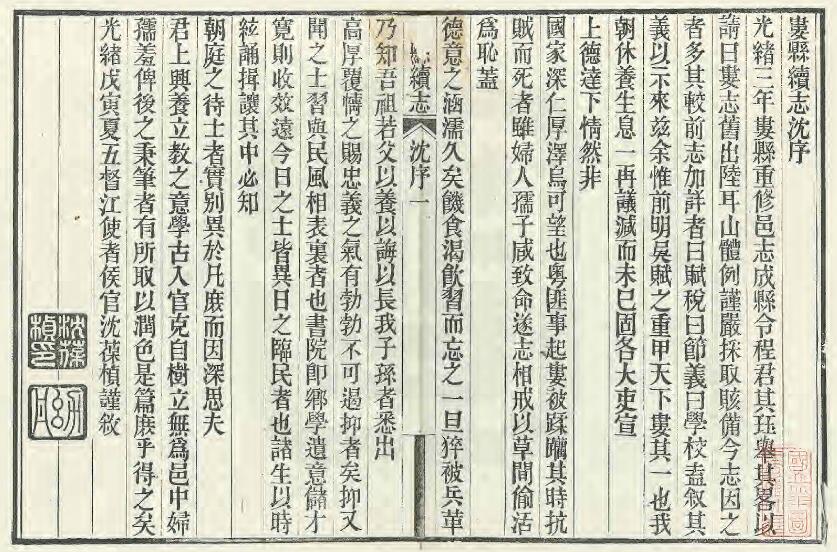 婁縣續志沈序
光緒三年婁縣重修邑志成縣令程君其珏舉其畧以
請曰婁志舊出陸耳山體例謹嚴採取賅備今志因之
者多其較前志加詳者曰賦稅曰節義曰學校盍敘其
義以示來兹余惟前明吳賦之重甲天下婁其一也我
朝休養生息一再議減而未已固各大吏宣
上德達下情然非
國家深仁厚澤烏可望也粵匪事起婁被蹂躪其時抗
賊而死者雖婦人孺子咸致命遂志相戒以草間偷活
爲恥蓋
德意之涵濡久矣饑食渴飲習而忘之一旦猝被兵革
續志
沈序一
乃知吾祖若父以養以誨以長我子孫者悉出
高厚覆幬之賜忠義之氣有勃勃不可遏抑者矣抑又
聞之士習與民風相表裏者也書院即鄉學遺意儲才
寬則收效遠今日之士皆異日之臨民者也諸生以時
絃誦揖讓其中必知
朝庭之待士者實別異於凡庶而因深思夫
君上興養立教之意學古入官克自樹立無爲邑中婦
孺羞俾後之秉筆者有所取以潤色是篇庶乎得之矣
光緒戊寅夏五督江使者侯官沈葆楨謹敘
沈葆
楨印